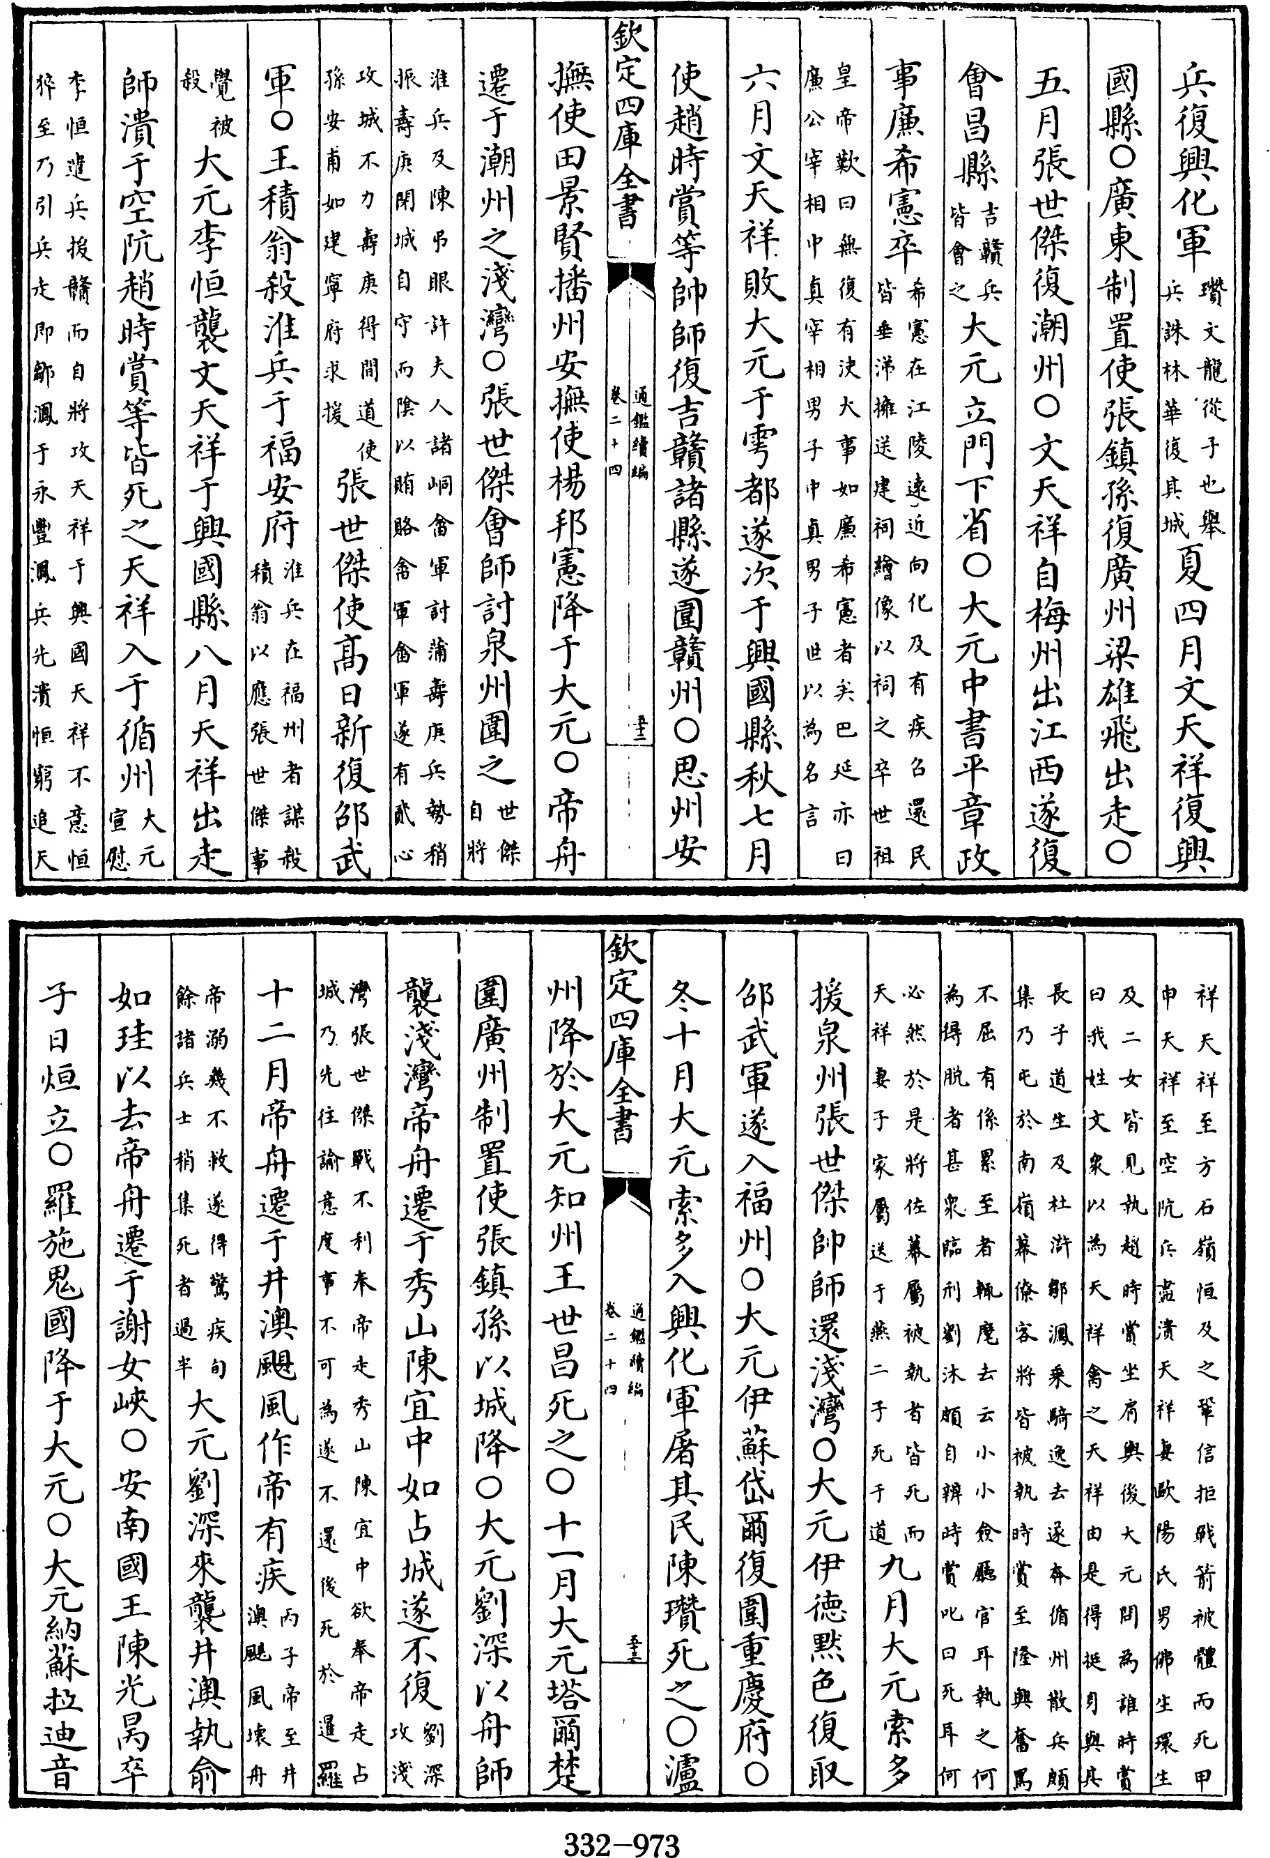 兵復興化軍瓚文龍從子也舉兵誅林華復其城夏四月文天祥復興
國縣○廣東制置使張鎮孫復廣州梁雄飛出走○
五月張世傑復潮州○文天祥自梅州出江西遂復
會昌縣吉贛兵皆會之大元立門下省○大元中書平章政
事廉希憲卒希憲在江陵遠近向化及有疾召還民皆垂涕擁送建祠繪像以祠之卒世祖
皇帝歎曰無復有決大事如廉希憲者矣巴延亦曰廉公宰相中真宰相男子中真男子世以為名言
六月文天祥敗大元于雩都遂次于興國縣秋七月
使趙時賞等帥師復吉贛諸縣遂圍贛州○思州安
欽定四庫全書
通鑑續編
卷二十四
五十二
撫使田景賢播州安撫使楊邦憲降于大元○帝舟
遷于潮州之淺灣○張世傑會師討泉州圍之世傑自將
淮兵及陳弔眼許夫人諸峒畬軍討蒲壽庚兵勢稍振壽庚閉城自守而陰以賄賂畬軍畬軍遂有貳心
攻城不力壽庚得間道使孫安甫如建寧府求援張世傑使高日新復邵武
軍○王積翁殺淮兵于福安府淮兵在福州者謀殺積翁以應張世傑事
覺被殺大元李恒襲文天祥于興國縣八月天祥出走
師潰于空阬趙時賞等皆死之天祥入于循州大元宣慰
李恒遣兵援贛而自將攻天祥于興國天祥不意恒猝至乃引兵走即鄒㵯于永豐㵯兵先潰恒窮追天
祥天祥至方石嶺恒及之鞏信拒戰箭被體而死甲申天祥至空阬兵盡潰天祥妻歐陽氏男佛生環生
及二女皆見執趙時賞坐肩輿後大元問為誰時賞曰我姓文衆以為天祥禽之天祥由是得挺身與其
長子道生及杜滸鄒㵯乘騎逸去遂奔循州散兵頗集乃屯於南嶺幕僚客將皆被執時賞至隆興奮罵
不屈有係累至者輒麾去云小小僉廳官耳執之何為得脫者甚衆臨刑劉沐頗自辨時賞叱曰死耳何
必然於是將佐幕屬被執者皆死而天祥妻子家屬送于燕二子死于道九月大元索多
援泉州張世傑帥師還淺灣○大元伊德黙色復取
邵武軍遂入福州○大元伊蘇岱爾復圍重慶府○
冬十月大元索多入興化軍屠其民陳瓚死之○瀘
欽定四庫全書
通鑑續編
卷二十四
五十三
州降於大元知州王世昌死之○十一月大元塔爾楚
圍廣州制置使張鎮孫以城降○大元劉深以舟師
襲淺灣帝舟遷于秀山陳宜中如占城遂不復劉深攻淺
灣張世傑戰不利奉帝走秀山陳宜中欲奉帝走占城乃先往諭意度事不可為遂不還後死於暹羅
十二月帝舟遷于井澳颶風作帝有疾丙子帝至井澳颶風壊舟
帝溺幾不救遂得驚疾旬餘諸兵士稍集死者過半大元劉深來襲井澳執俞
如珪以去帝舟遷于謝女峽○安南國王陳光昺卒
子日烜立○羅施鬼國降于大元○大元納蘇拉迪音
332-973